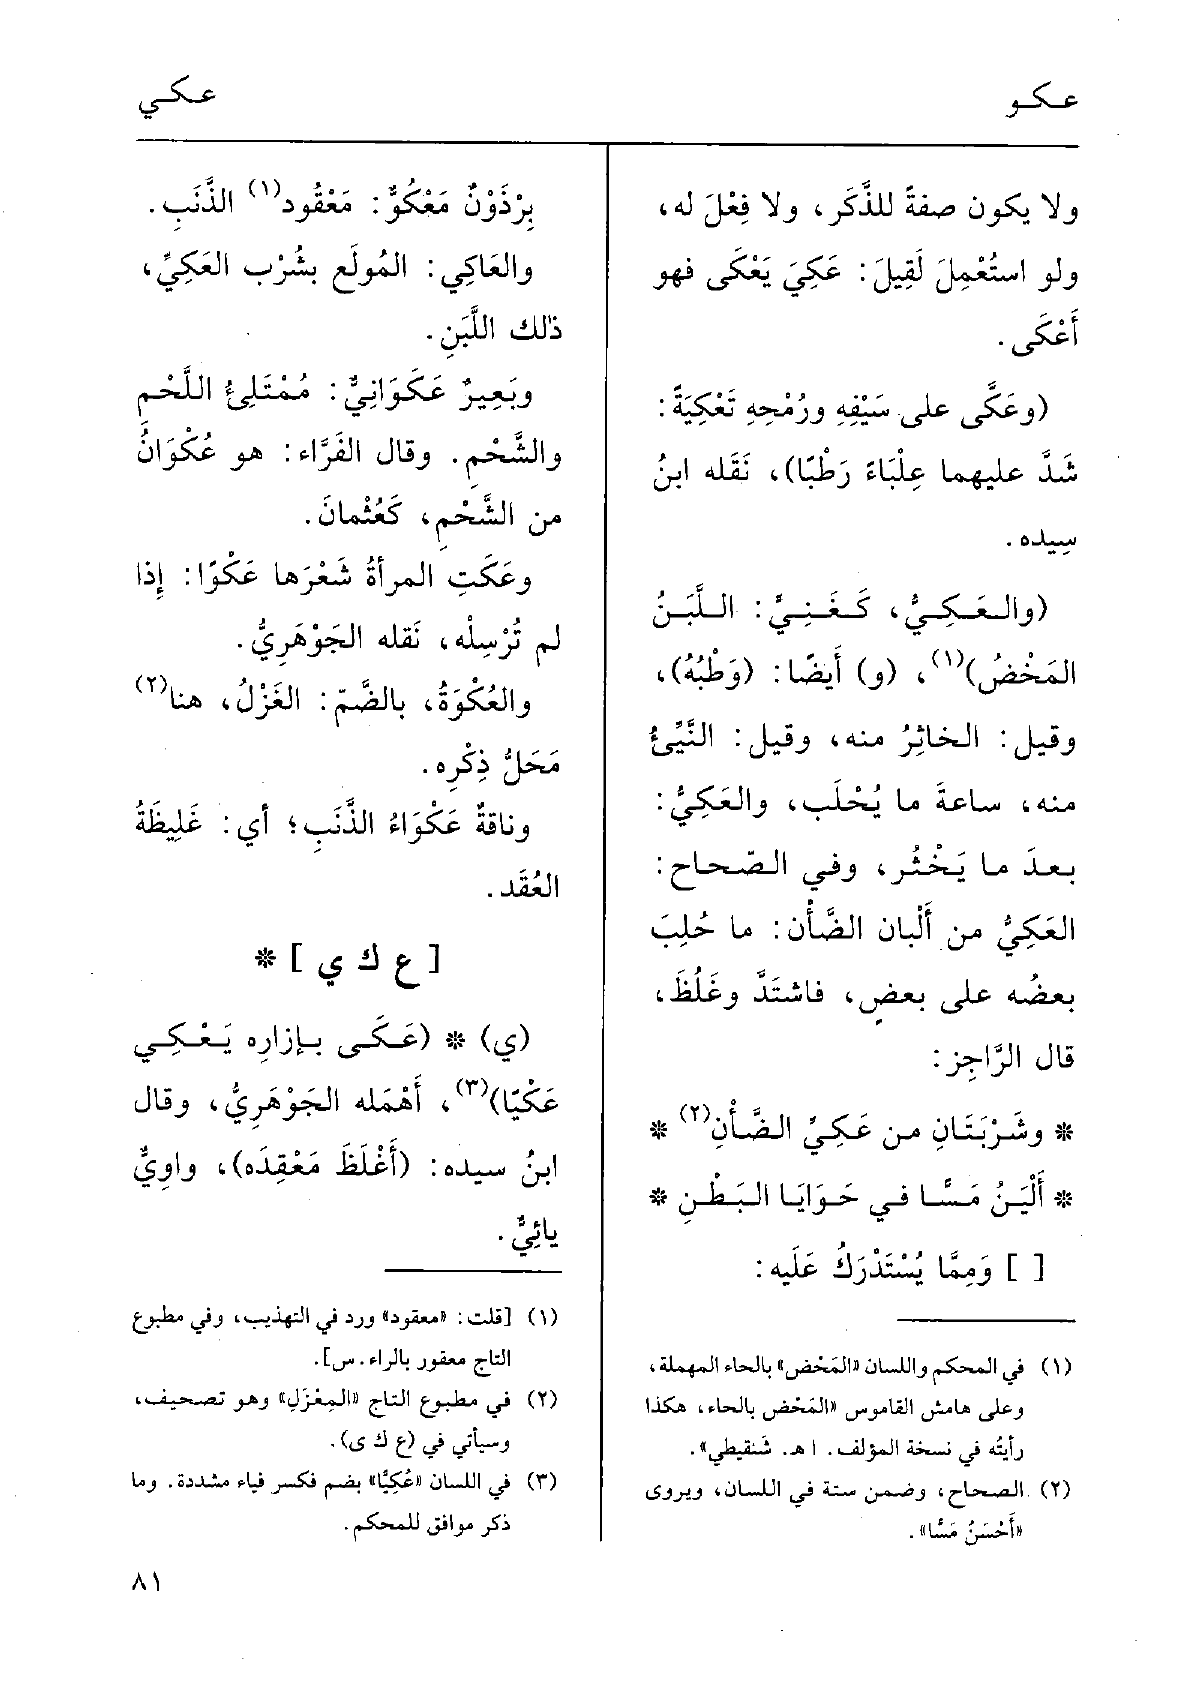 عكو
عكي
ولا يكون صفةً للذَّكَر، ولا فِعْلَ له،
ولو استُعْمِلَ لَقِيلَ: عَكِيَ يَعْكَى فهو
أَعْكَى.
(وعَكَّى على سَيْفِهِ ورُمْحِهِ تَعْكِيَةً:
شَدَّ عليهما عِلْبَاءً رَطْبًا)، نَقَله ابنُ
سِيده.
(والعَكِيُّ، كَغَنِيٍّ: اللَّبَنُ
المَخْضُ)(١)، (و) أَيضًا: (وَطْبُهُ)،
وقيل: الخاثِرُ منه، وقيل: النَّيِّئُ
منه، ساعةَ ما يُحْلَب، والعَكِيُّ:
بعدَ ما يَخْثُر، وفي الصّحاح:
العَكِيُّ من أَلْبان الضَّأْن: ما حُلِبَ
بعضُه على بعضٍ، فاشتَدَّ وغَلُظَ،
قال الرَّاجِز:
* وشَرْبَتَانِ من عَكِيِّ الضَّأْنِ(٢) *
* أَلْيَنُ مَسًّا في حَوَايَا البَطْنِ *
[ ] وَمِمَّا يُسْتَدْرَكُ عَلَيه:
(١) في المحكم واللسان «المَحْض» بالحاء المهملة،
وعلى هامش القاموس «المَحْض بالحاء، هكذا
رأيتُه في نسخة المؤلف. اهـ. شنقيطي».
(٢) الصحاح، وضمن ستة في اللسان، ويروى
«أَحْسَنُ مَسًّا».
بِرْذَوْنٌ مَعْكُوٌّ: مَعْقُود(١) الذَّنَبِ.
والعَاكِي: المُولَع بشُرْب العَكِيِّ،
ذلك اللَّبَنِ.
وبَعِيرٌ عَكَوَانِيٌّ: مُمْتَلِئُ اللَّحْمِ
والشَّحْمِ. وقال الفَرَّاء: هو عُكْوَانٌ
من الشَّحْمِ، كَعُثْمانَ.
وعَكَتِ المرأةُ شَعْرَها عَكْوًا: إِذا
لم تُرْسِلْه، نَقَله الجَوْهَرِيُّ.
والعُكْوَةُ، بالضَّمّ: الغَزْلُ، هنا(٢)
مَحَلُّ ذِكْرِه.
وناقةٌ عَكْوَاءُ الذَّنَبِ؛ أي: غَلِيظَةُ
العُقَد.
[ ع ك ي ] *
(ي) * (عَكَى بإزارِه يَعْكِي
عَكْيًا)(٣)، أَهْمَله الجَوْهَرِيُّ، وقال
ابنُ سيده: (أَغْلَظَ مَعْقِدَه)، واوِيٌّ
يائِيٌّ.
(١) [قلت: «معقود» ورد في التهذيب، وفي مطبوع
التاج معقور بالراء. س].
(٢) في مطبوع التاج «المِغْزَلِ» وهو تصحيف،
وسيأتي في (ع ك ى).
(٣) في اللسان «عُكِيًّا» بضم فكسر فياء مشددة. وما
ذكر موافق للمحكم.
٨١